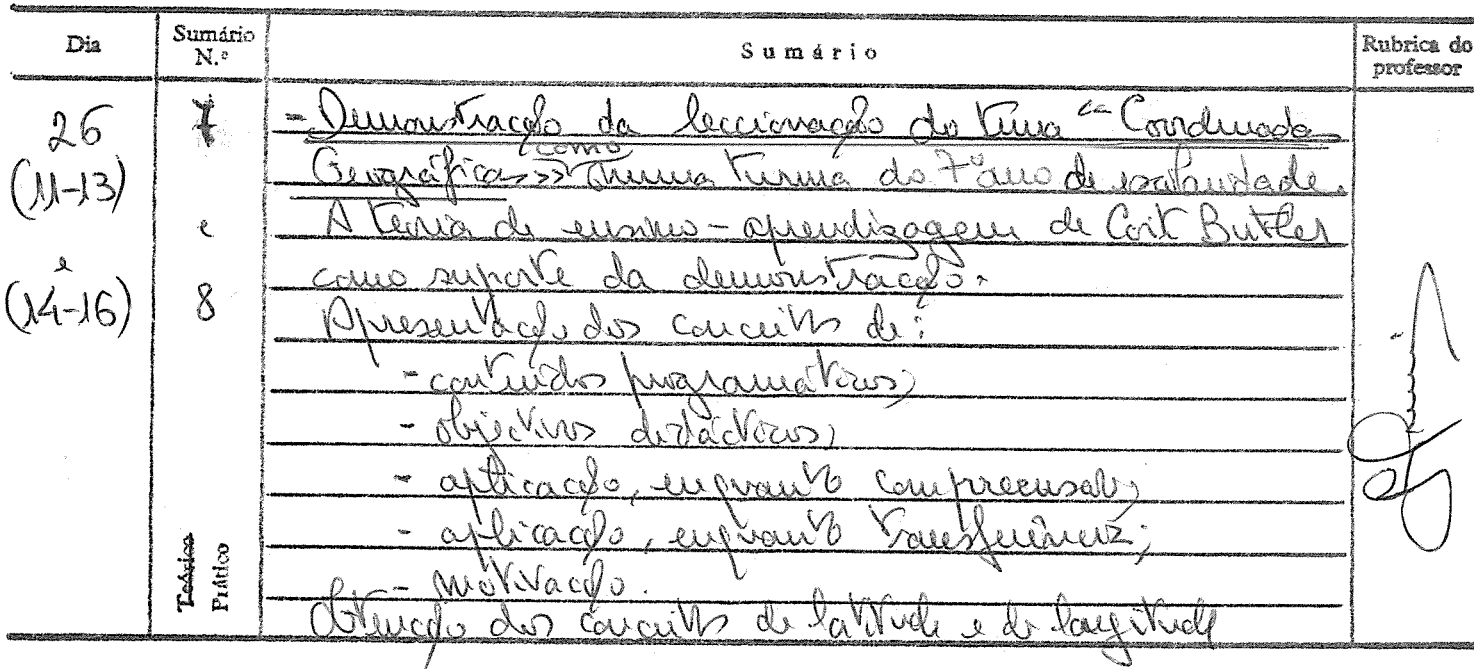 Dia
Sumário N.º
Sumário
Rubrica do professor
26
(11-13)
e
(14-16)
7
e
8
Teórico
Prático
- Demonstração da leccionação do tema "Coordenadas
Geográficas>> como numa turma do 7º ano de escolaridade.
A teoria de ensino-aprendizagem de Coit Butler
como suporte da demonstração.
Apresentação dos conceitos de:
- conteúdos programáticos;
- objectivos didácticos;
- aplicação, enquanto compreensão;
- aplicação, enquanto transferência;
- motivação.
Obtenção dos conceitos de latitude e de longitude